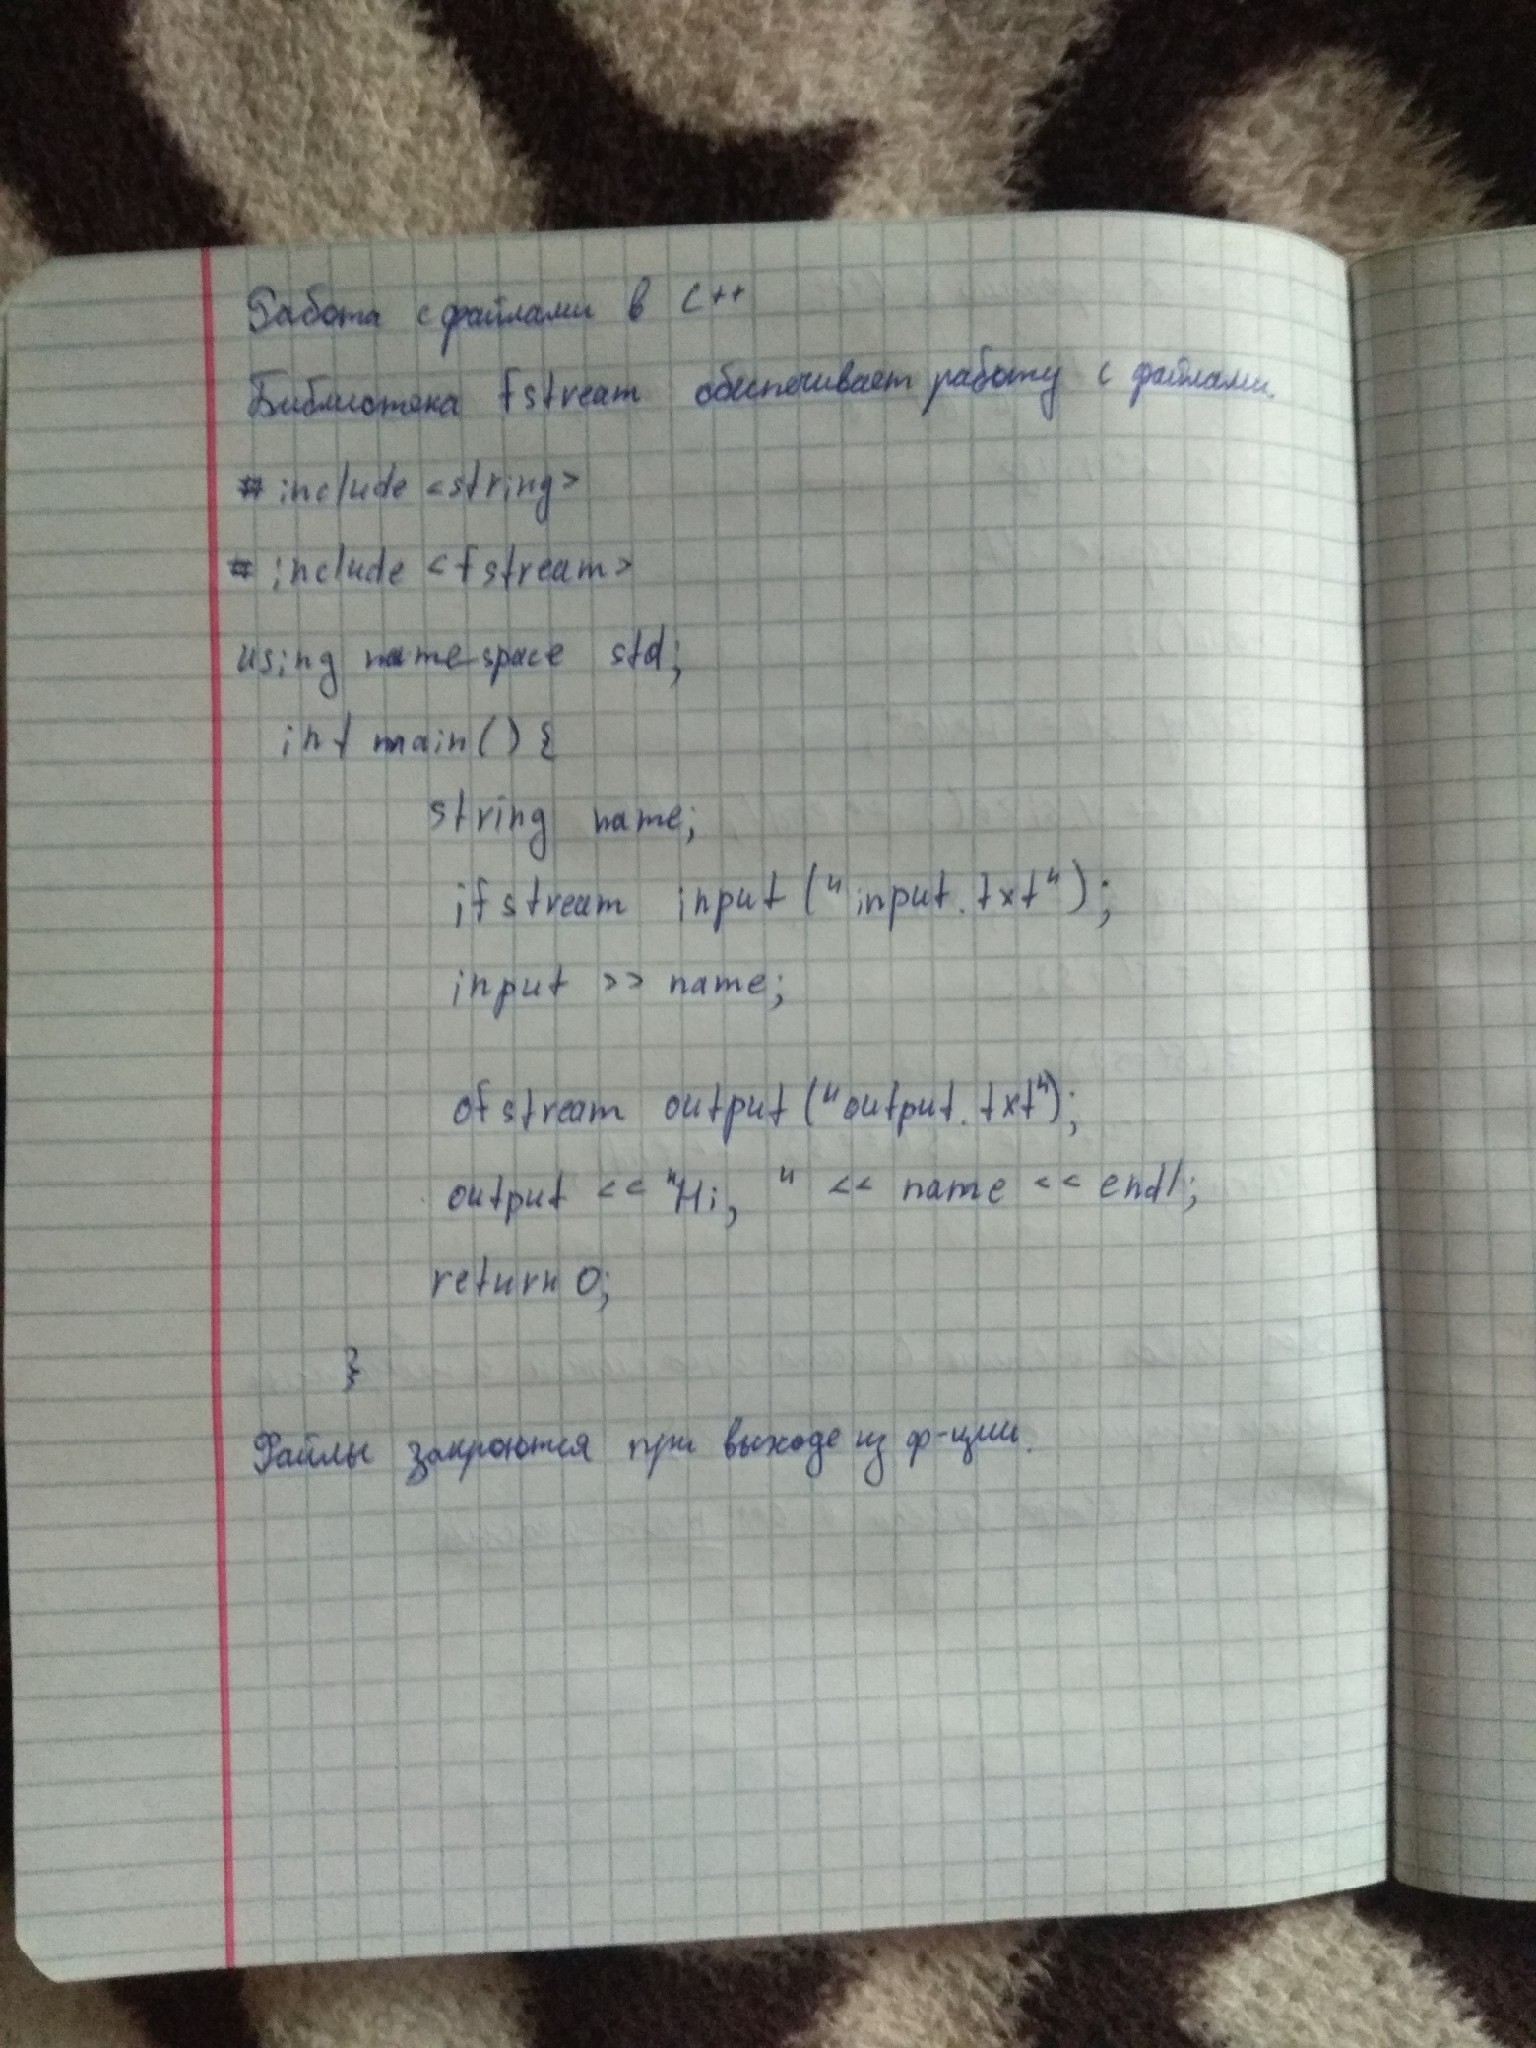 Работа с файлами в C++
Библиотека fstream обеспечивает работу с файлами.
#include <string>
#include <fstream>
using namespace std;
int main() {
string name;
ifstream input ("input.txt");
input >> name;
ofstream output ("output.txt");
output << "Hi, " << name << endl;
return 0;
}
Файлы закроются при выходе из ф-ции.